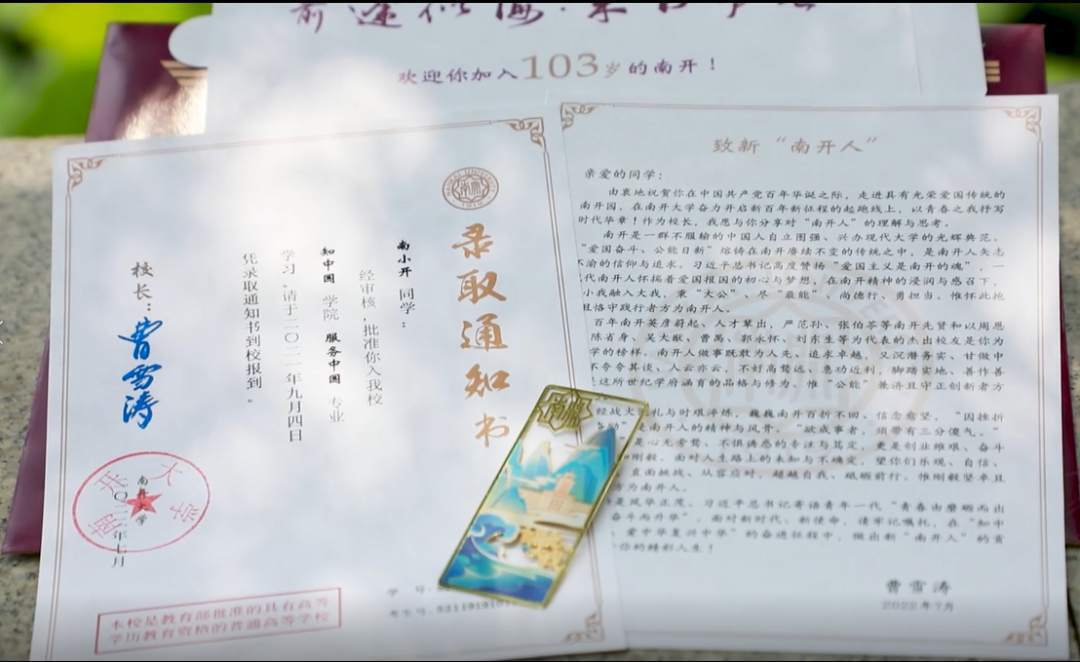 前途似海·来日方长
欢迎你加入103岁的南开！
录取通知书
南小开 同学：
经审核，批准你入我校
知中国 学院 服务中国 专业
学习，请于二〇二一年九月四日
凭录取通知书到校报到。
校长：曹雪涛
南开大学
二〇二一年七月
本校是教育部批准的具有高等
学历教育资格的普通高等学校
学号
考生号
致新“南开人”
亲爱的同学：
由衷地祝贺你在中国共产党百年华诞之际，走进具有光荣爱国传统的
南开园，在南开大学奋力开启新百年新征程的起跑线上，以青春之我抒写
时代华章！作为校长，我愿与你分享对“南开人”的理解与思考。
南开是一群不服输的中国人自立图强、兴办现代大学的光辉典范。
“爱国奋斗、公能日新”熔铸在南开赓续不变的传统之中，是南开人矢志
不渝的信仰与追求。习近平总书记高度赞扬“爱国主义是南开的魂”，一
代南开人怀揣着爱国报国的初心与梦想，在南开精神的浸润与感召下，
小我融入大我，秉“大公”、尽“最能”，尚德行、勇担当，惟怀此抱
且恪守践行者方为南开人。
百年南开英彦蔚起、人才辈出，严范孙、张伯苓等南开先贤和以周恩
陈省身、吴大猷、曹禺、郭永怀、刘东生等为代表的杰出校友是你为
学的榜样。南开人做事既敢为人先、追求卓越，又沉潜务实、甘做中
不夸夸其谈、人云亦云，不好高骛远、急功近利，脚踏实地、善作善
是这所世纪学府涵育的品格与修为，惟“公能”兼济且守正创新者方
经战火洗礼与时艰淬炼，巍巍南开百折不回、信念愈坚，“因挫折
是南开人的精神与风骨。“欲成事者，须带有三分傻气。”
是心无旁骛、不惧诱惑的专注与笃定，更是创业维艰、奋斗
和刚毅。面对人生路上的未知与不确定，望你们乐观、自信、
直面挑战、从容应对，超越自我、砥砺前行，惟刚毅坚卓且
方为南开人。
是风华正茂。习近平总书记寄语青年一代“青春由磨砺而出
奋斗而升华”，面对新时代、新使命，请牢记嘱托，在“知中
爱中华复兴中华”的奋进征程中，做出新“南开人”的贡
你的精彩人生！
曹雪涛